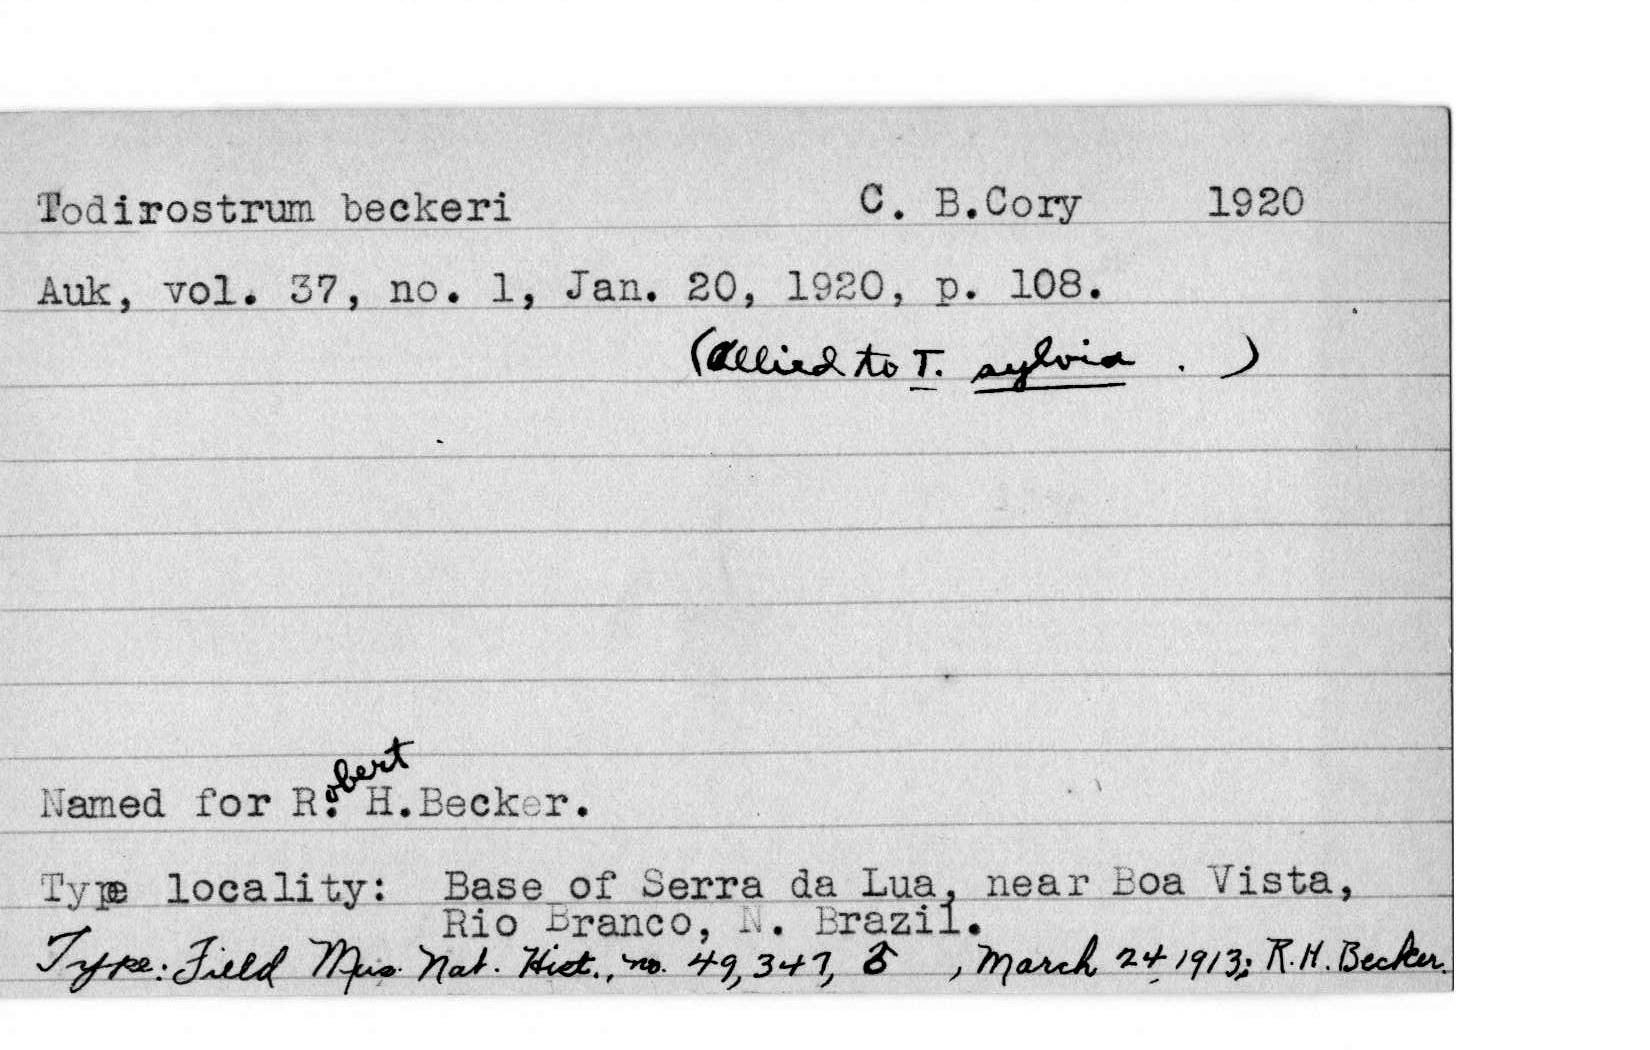 Todirostrum beckeri C. B.Cory 1920
Auk, vol. 37, no. 1, Jan. 20, 1920, p. 108.
(Allied to T. sylvia . )
obert
Named for R. H.Becker.
Type locality: Base of Serra da Lua, near Boa Vista,
Rio Branco, N. Brazil.
Type: Field Mus. Nat. Hist., no. 49,347, ♂ , March 24, 1913; R.H. Becker.